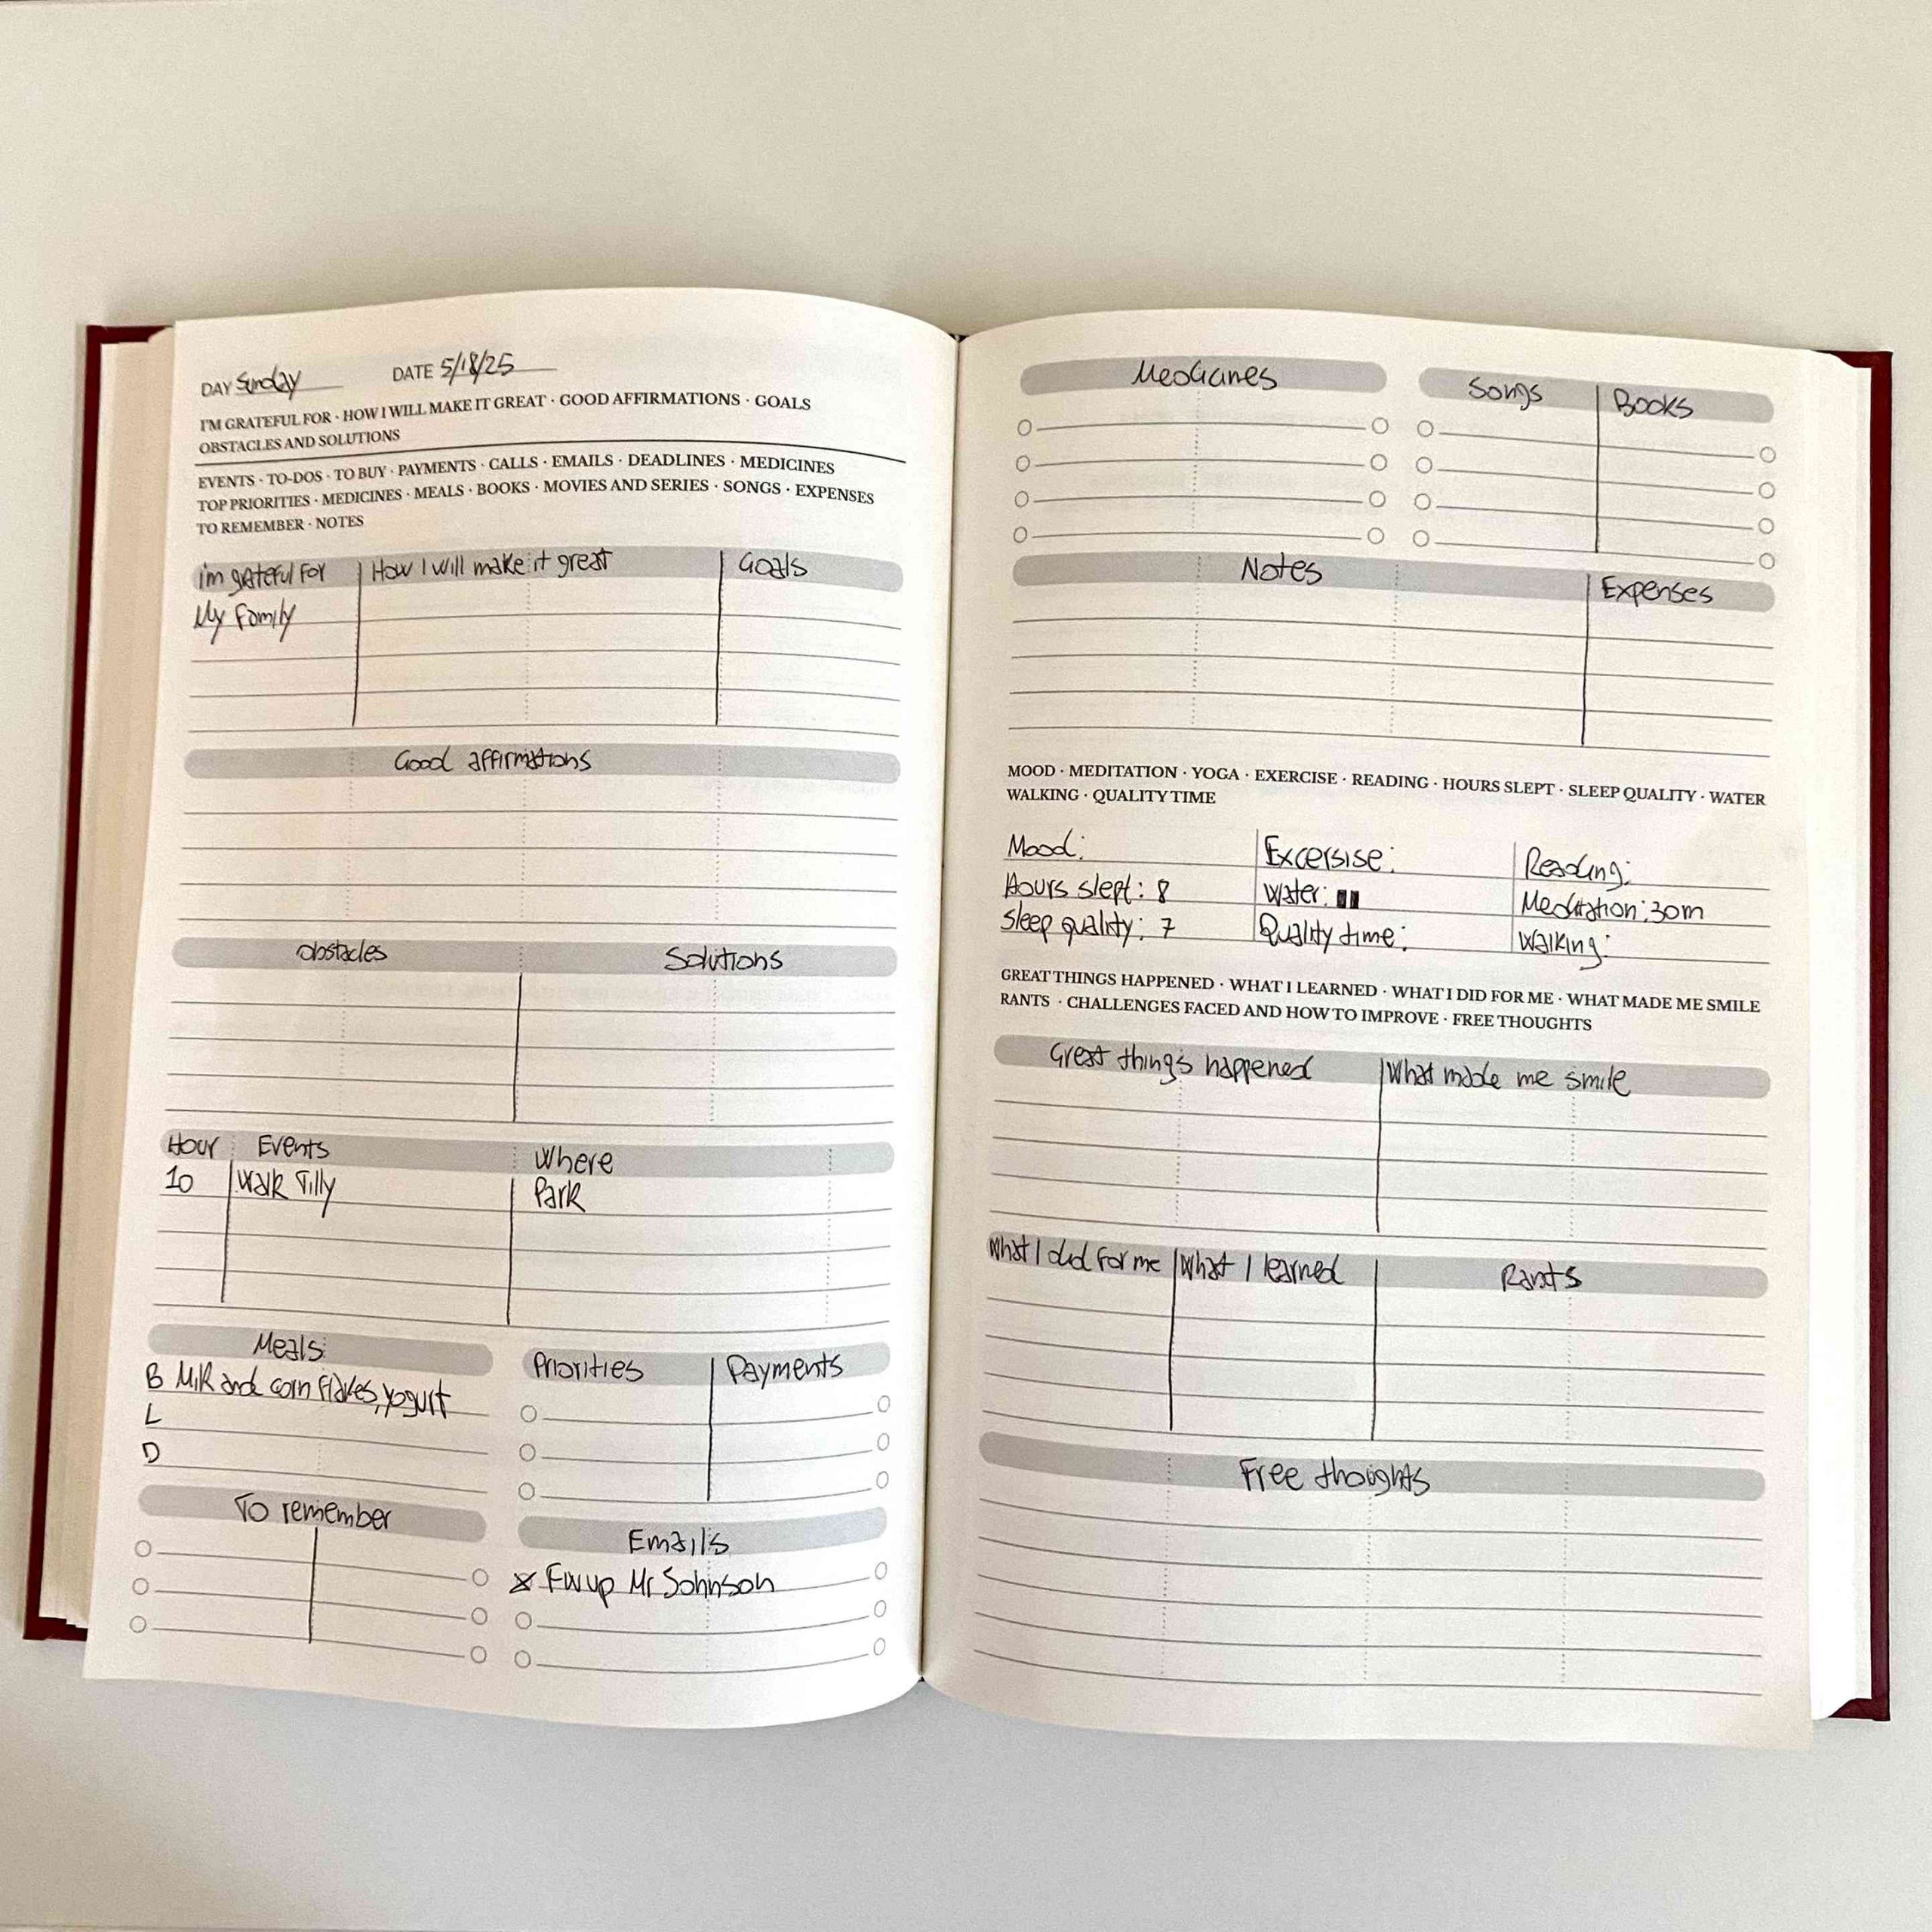 DAY Sunday DATE 5/18/25
I'M GRATEFUL FOR · HOW I WILL MAKE IT GREAT · GOOD AFFIRMATIONS · GOALS
OBSTACLES AND SOLUTIONS
EVENTS · TO-DOS · TO BUY · PAYMENTS · CALLS · EMAILS · DEADLINES · MEDICINES
TOP PRIORITIES · MEDICINES · MEALS · BOOKS · MOVIES AND SERIES · SONGS · EXPENSES
TO REMEMBER · NOTES
i'm grateful for How I will make it great Goals
My Family
Good affirmations
obstacles Solutions
Hour Events Where
10 Walk Tilly Park
Meals
B Milk and corn flakes, yogurt
L
D
Priorities Payments
To remember
Emails
Fwup Mr Johnson
Medicines
Songs Books
Notes Expenses
MOOD · MEDITATION · YOGA · EXERCISE · READING · HOURS SLEPT · SLEEP QUALITY · WATER
WALKING · QUALITY TIME
Mood: Excersise: Reading:
Hours slept: 8 Water: Meditation: 30m
Sleep quality: 7 Quality time: Walking:
GREAT THINGS HAPPENED · WHAT I LEARNED · WHAT I DID FOR ME · WHAT MADE ME SMILE
RANTS · CHALLENGES FACED AND HOW TO IMPROVE · FREE THOUGHTS
Great things happened What made me smile
What I did for me What I learned Rants
Free thoughts